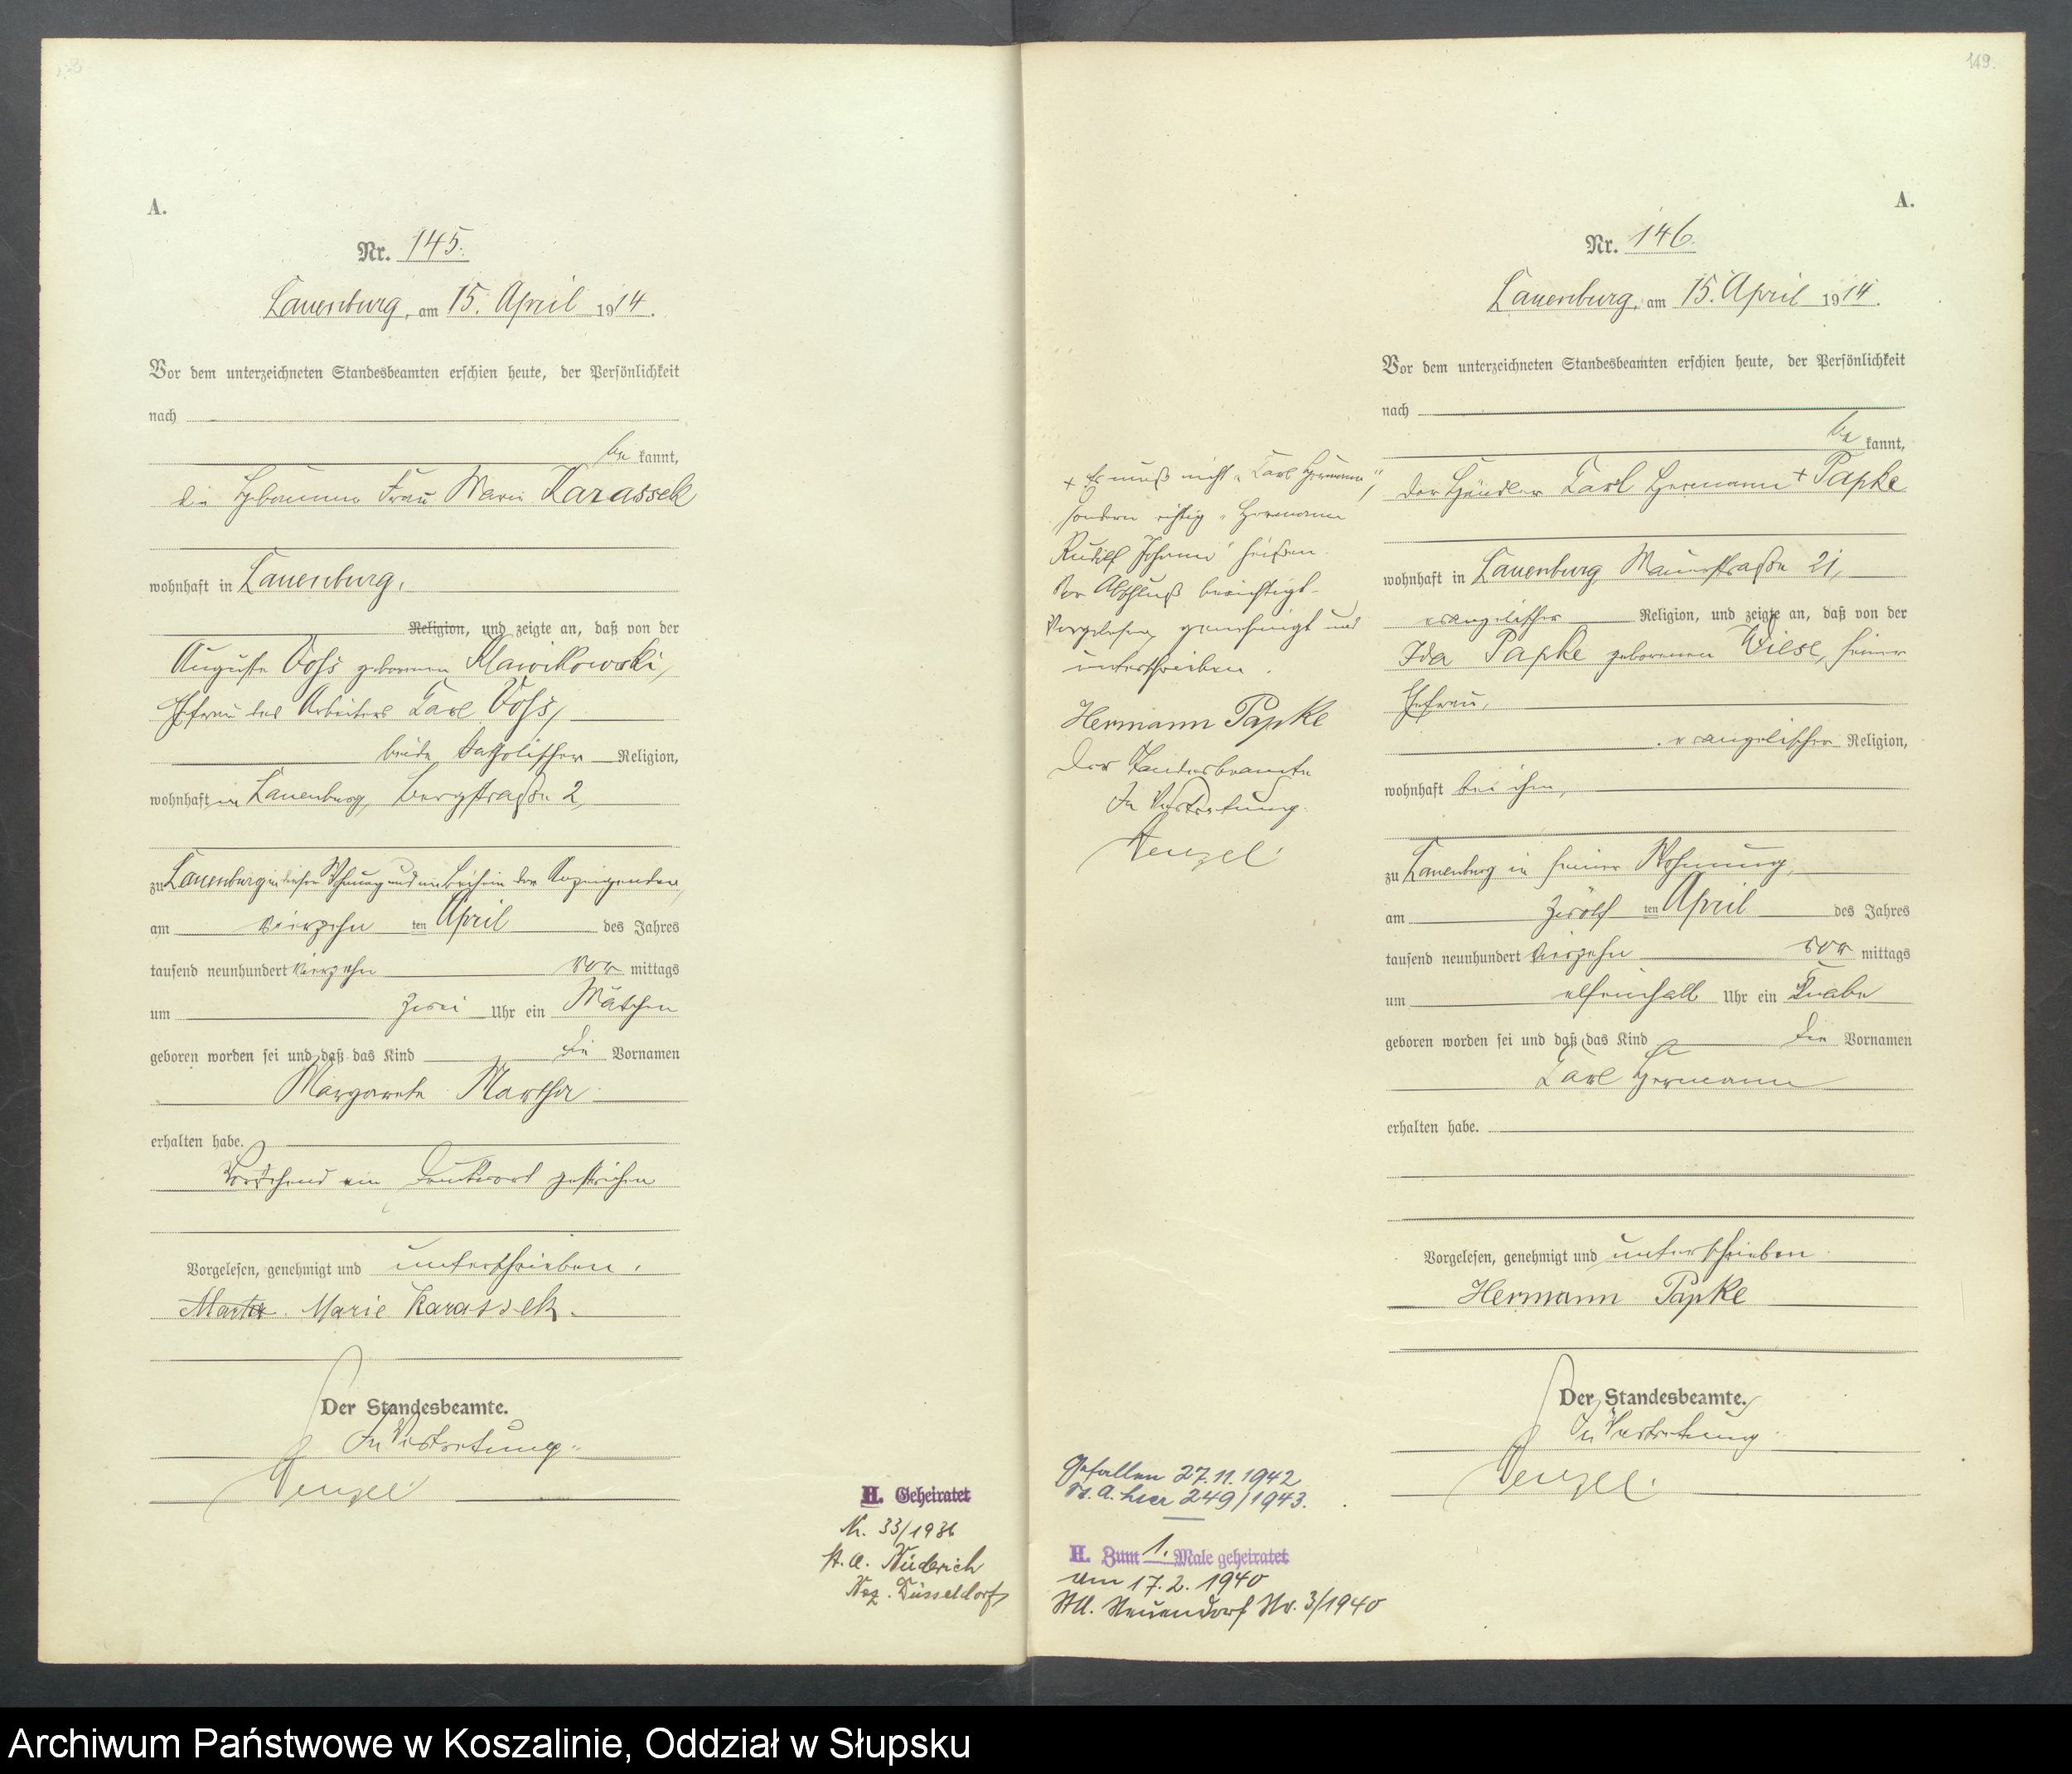 A.
Nr. 145.
Lauenburg, am 15. April 1914.
Vor dem unterzeichneten Standesbeamten erschien heute, der Persönlichkeit
nach
be kannt,
die Hebamme Frau Marie Karassek
wohnhaft in Lauenburg,
Religion, und zeigte an, daß von der
Auguste Voß geborenen Klawikowski,
Ehefrau des Arbeiters Carl Voß,
beide katholischer Religion,
wohnhaft in Lauenburg, Bergstraße 2,
zu Lauenburg in dieser Wohnung und im Beisein der Anzeigenden,
am vierzehn ten April des Jahres
tausend neunhundert vierzehn vor mittags
um zwei Uhr ein Mädchen
geboren worden sei und daß das Kind die Vornamen
Margarete Martha
erhalten habe.
Vorstehend ein Druckwort gestrichen
Vorgelesen, genehmigt und unterschrieben.
Marie Karassek.
Der Standesbeamte.
In Vertretung.
Wenzel
H. Geheiratet
Nr. 33/1936
St. A. Büderich
Bez. Düsseldorf
149.
A.
Nr. 146.
Lauenburg, am 15. April 1914.
Vor dem unterzeichneten Standesbeamten erschien heute, der Persönlichkeit
nach
be kannt,
der Händler Carl Hermann + Papke
wohnhaft in Lauenburg Mauerstraße 21,
evangelischer Religion, und zeigte an, daß von der
Ida Papke geborenen Wiese, seiner
Ehefrau,
evangelischer Religion,
wohnhaft bei ihm,
zu Lauenburg in seiner Wohnung,
am zwölf ten April des Jahres
tausend neunhundert vierzehn vor mittags
um elfeinhalb Uhr ein Knabe
geboren worden sei und daß das Kind die Vornamen
Carl Hermann
erhalten habe.
Vorgelesen, genehmigt und unterschrieben.
Hermann Papke
Der Standesbeamte.
In Vertretung.
Wenzel.
+ Es muß nicht „Carl Hermann",
sondern richtig „Hermann
Rudolf Johann" heißen.
Vor Abschluß berichtigt.
Vorgelesen, genehmigt und
unterschrieben.
Hermann Papke
Der Standesbeamte
In Vertretung.
Wenzel
Gefallen 27.11.1942
St. A. hier 249/1943.
H. Zum 1. Male geheiratet
am 17.2.1940
StA. Neuendorf Nr. 3/1940
Archiwum Państwowe w Koszalinie, Oddział w Słupsku